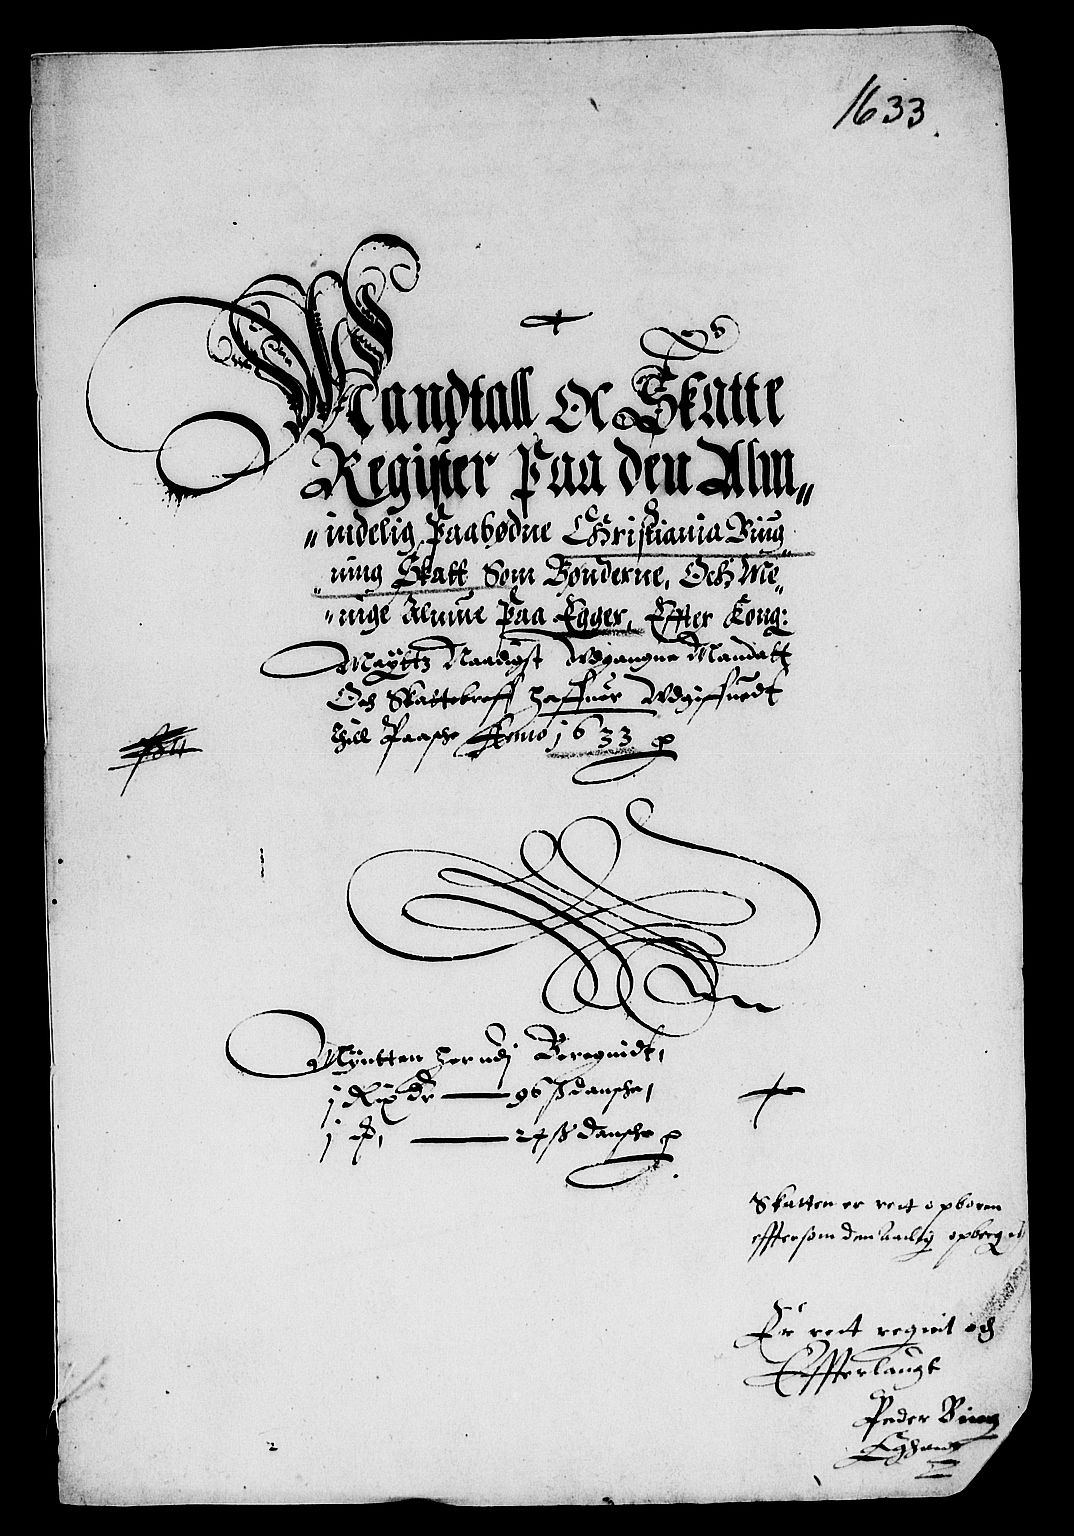 1633.
Mandtall Oc Skatte
Register Paa den Alm„
„indelig Paabødne Christiania Biug„
„ning Skatt Som Bønderne, Och Me„
„nige Almue Paa Egger, Effter Kong:
Mayttz Naadigst Udgangne Mandatt
Och Skattebreff haffuer Udgiffuedt
thill Paasche Anno 1633
Myntten herudj Beregnidt,
j Rix dr — 96 ß dansche,
j — 24 ß dansche
Skatten er rett opboren
efftersom den aarlig
Er rett regnit och
Efferlaugt
Peder Bing